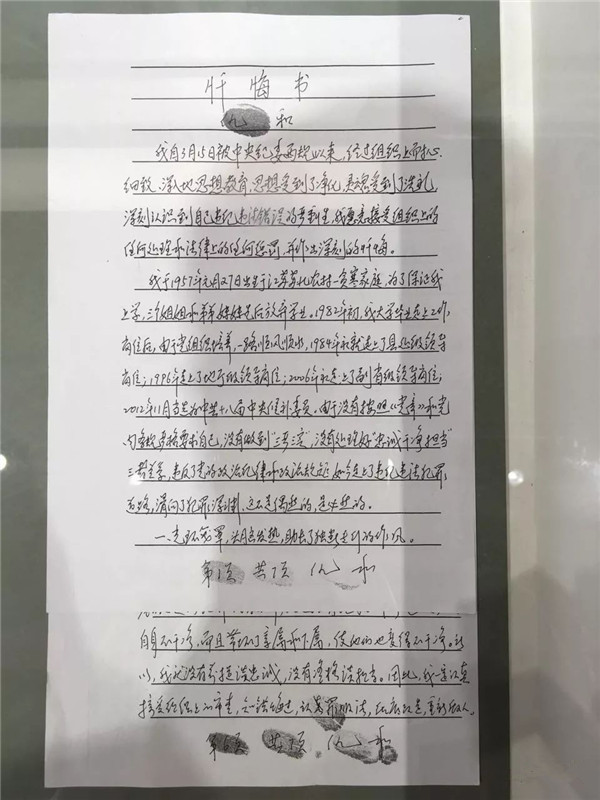 忏悔书
仇和
我自3月15日被中央纪委两规以来，经过组织上耐心、
细致、深入地思想教育，思想受到了净化，灵魂受到了洗礼，
深刻认识到自己违纪违法错误的严重性，我愿意接受组织上的
任何处理和法律上的任何惩罚，并作出深刻的忏悔。
我于1957年元月27日出生于江苏苏北农村一贫寒家庭，为了保证我
上学，三个姐姐和弟弟妹妹先后放弃学业。1982年初，我大学毕业走上工作
岗位后，由于党组织培养，一路顺风顺水，1984年就走上了县处级领导
岗位；1996年走上了地厅级领导岗位；2006年走上了副省级领导岗位；
2012年11月当选为中共十八届中央候补委员。由于没有按照《党章》和党
的各级要求自己，没有做到“三严三实”，没有处理好“忠诚干净担当”
三者关系，违反了党的政治纪律和政治规矩，如今走上了违纪违法犯罪
道路，滑向了犯罪深渊，这不是偶然的，是必然的。
一、头脑发热，助长了独断专行的作风。
第1页 共7页 仇和
自身不干净，而且带坏了亲属和下属，使他们也变得不干净。所
以，我就没有资格谈忠诚，没有资格谈担当。因此，我一定认真
接受组织上的审查，知错悔过，认罪服法，彻底改造，重新做人。
第6页 共7页 仇和